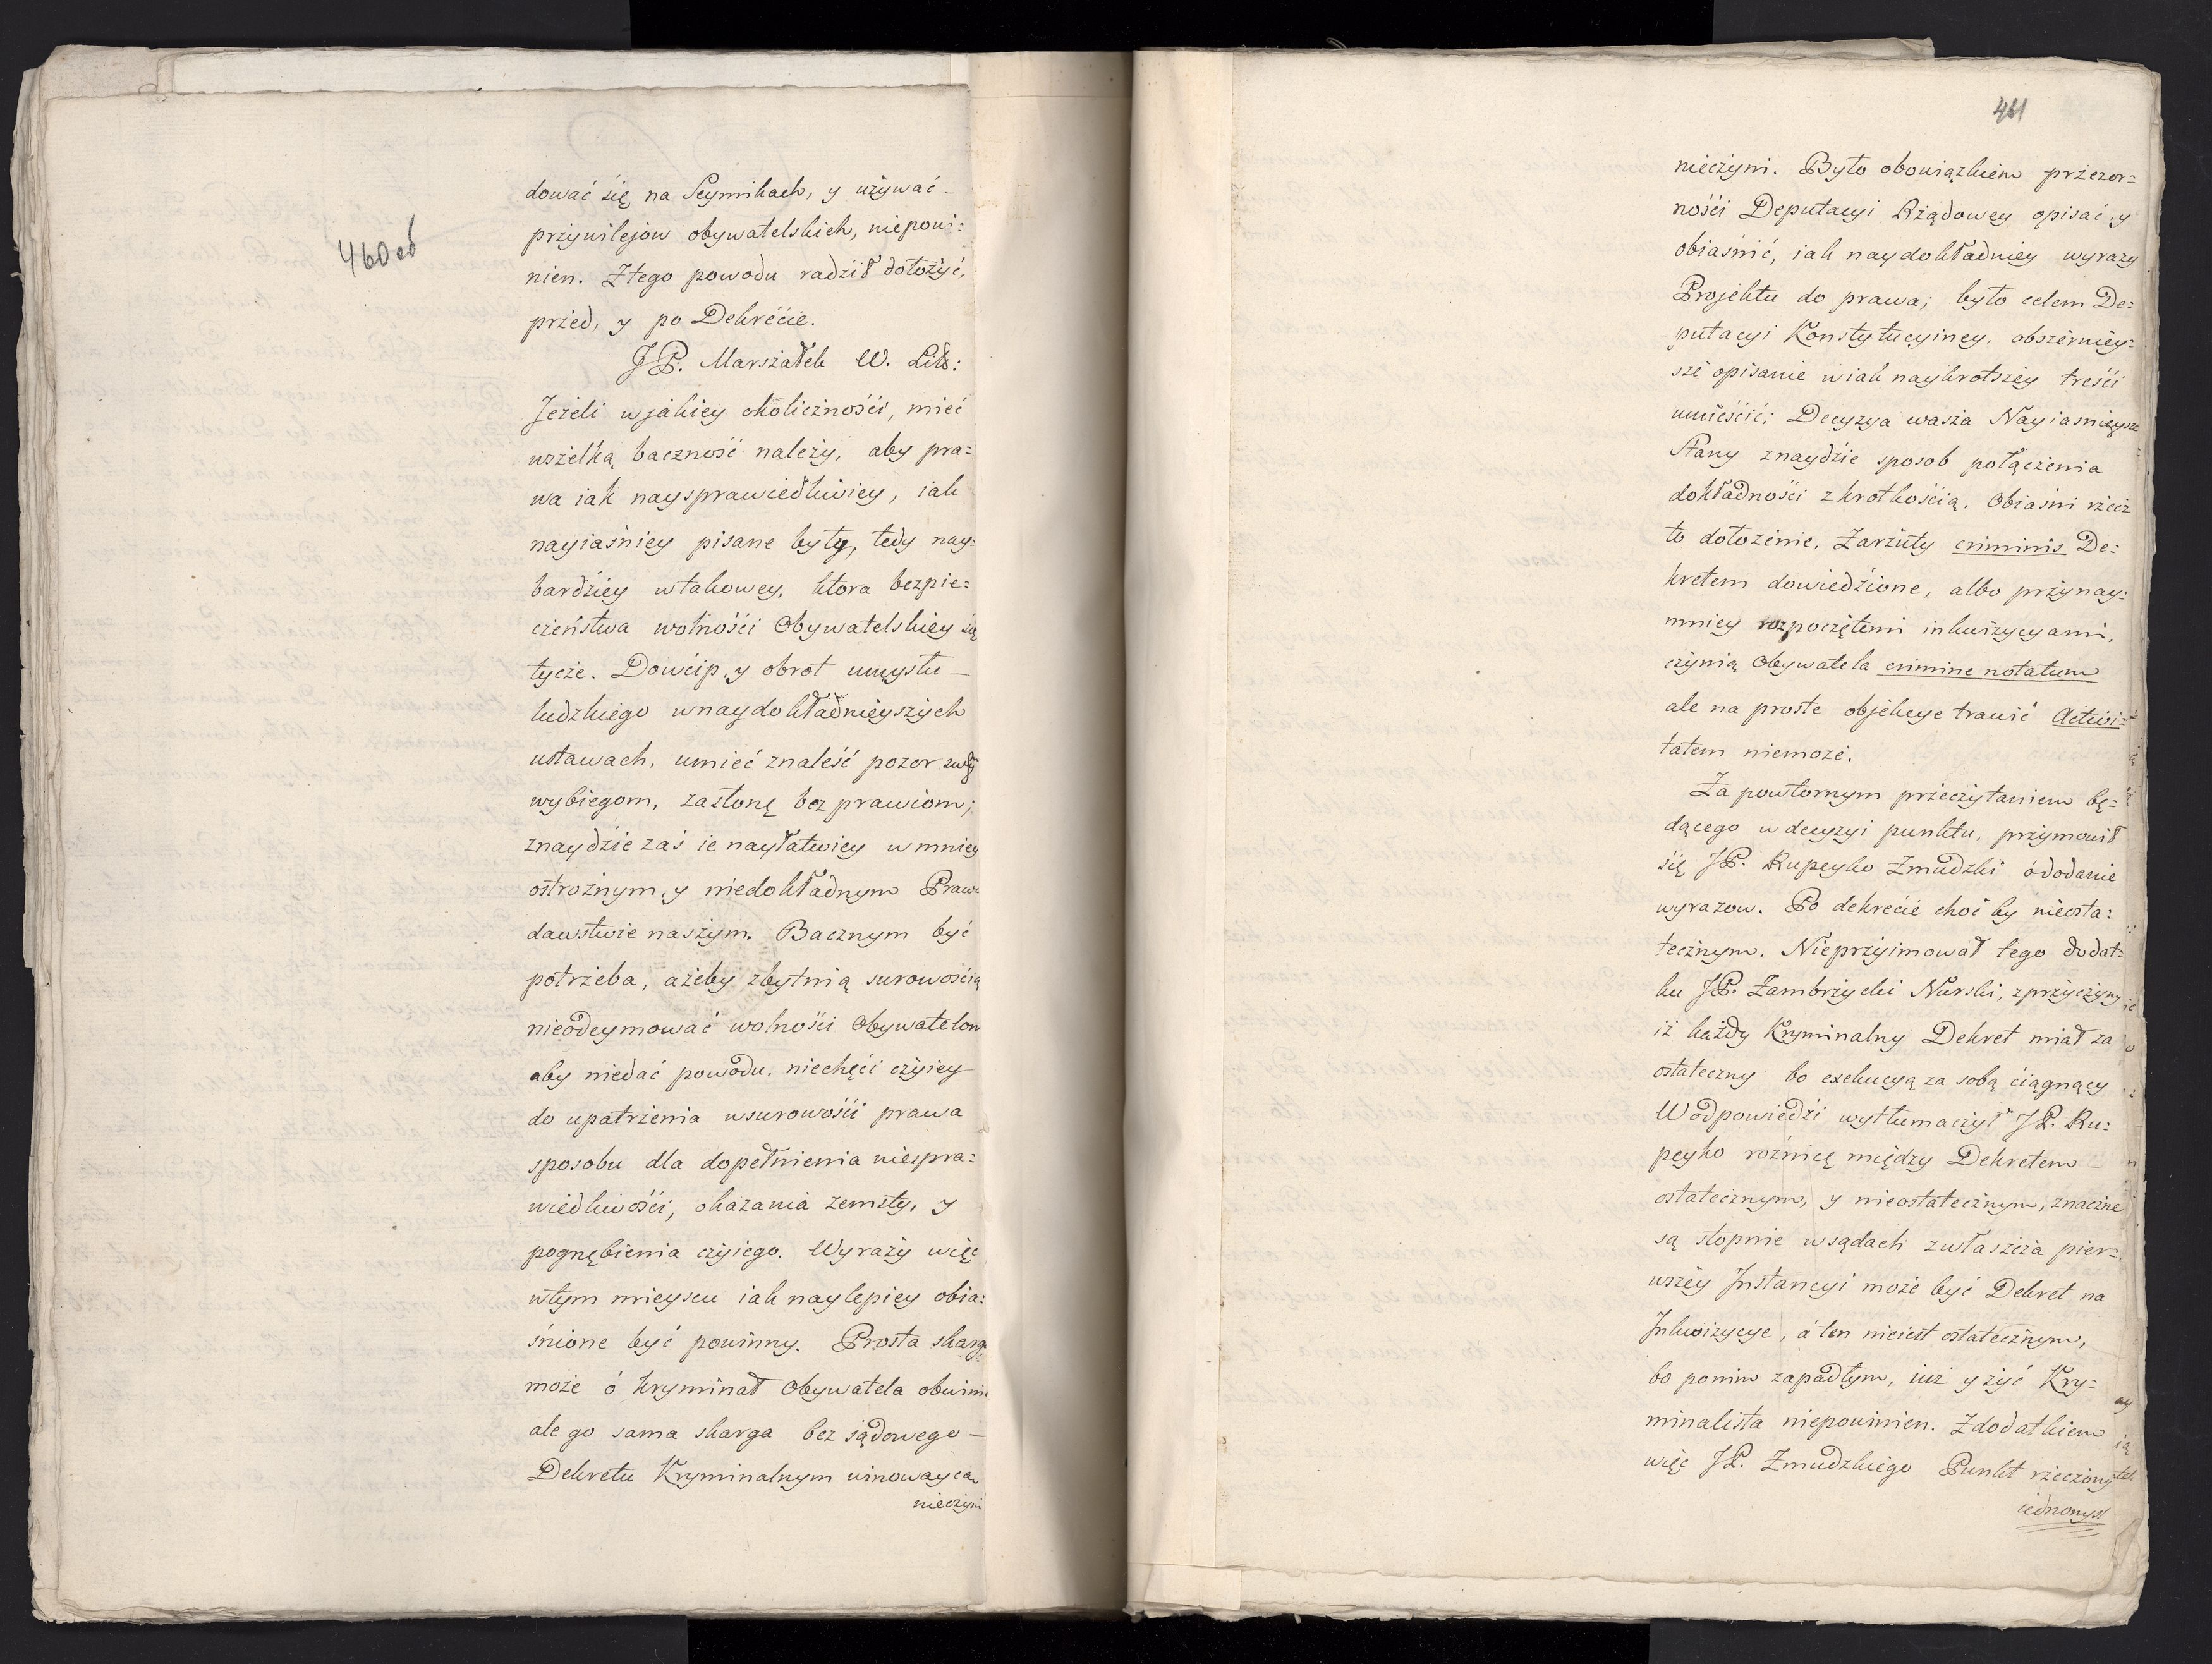 460об
dować się na Seymikach, y używać –
przywilejow obywatelskich, niepowi=
nien. Ztego powodu radził dołożyć,
przed, y po Dekrécie.
JP. Marszałek W. Litt:
Jeżeli wjakiey okolicznośći, mieć
wszelką baczność należy, aby pra=
wa iak naysprawiedliwiey, iak
nayiaśniey pisane były, tedy nay=
bardźiey wtakowey, ktora bezpie=
czeństwa wolnośći Obywatelskiey się
tycze. Dowćip, y obrot umysłu –
ludzkiego wnaydokładnieyszych
ustawach, umieć znaleść pozor
wybiegom, zasłonę bezprawiom;
znaydźie zaś ie nayłatwiey wmniey
ostrożnym, y niedokładnym Prawo
dawstwie naszym. Bacznym być
potrzeba, ażeby zbytnią surowośćią
nieodeymować wolnośći Obywatelom
aby niedać powodu, niechęći czyiey
do upatrzenia wsurowośći prawa
sposobu dla dopełnienia niespra=
wiedliwośći, okazania zemsty, y
pognębienia czyiego. Wyrazy więc
wtym mieyscu iak naylepiey obia=
śnione być powinny. Prosta skarga
może ó kryminał Obywatela obwinić
ale go sama skarga bez sądowego –
Dekretu Kryminalnym winowaycą
nieczyni
461
nieczyni. Było obowiązkiem przezor=
nośći Deputacyi Rządowey opisać, y
obiaśnić, iak naydokładniey wyrazy
Projektu do prawa; było celem De=
putacyi Konstytucyiney, obszerniey=
sze opisanie wiak naykrotszey treśći
umieśćić; Decyzya wasza Nayiaśnieysze
Stany znaydźie sposob połączenia
dokładnośći z krotkośćią. Obiaśni rzecz
to dołożenie, Zarzuty criminis De=
kretem dowiedźione, albo przynay=
mniey rozpoczętemi inkwizycyami,
czynią Obywatela crimine notatum
ale na proste objekcye tracić Activi=
tatem niemoże.
Za powtornym przeczytaniem bę=
dącego w decyzyi punktu, przymowił
się JP. Rupeyko Zmudzki ó dodanie
wyrazow. Po dekrećie choć by nieosta=
tecznym. Nieprzyimował tego dodat=
ku JP. Zambrzycki Nurski, zprzyczyny
iż każdy Kryminalny Dekret miał za
ostateczny bo exekucyą za sobą ćiągnący
Wodpowiedźi wytłumaczył JP. Ru=
peyko rożnicę między Dekretem –
ostatecznym, y nieostatecznym, znaczne
są stopnie wsądach zwłaszcza pier=
wszey Jnstancyi może być Dekret na
Jnkwizycye, á ten nieiest ostatecznym,
bo ponim zapadłym, iuż y żyć Kry=
minalista niepowinien. Zdodatkiem
więc JP. Zmudzkiego Punkt rzeczony
iednomysl